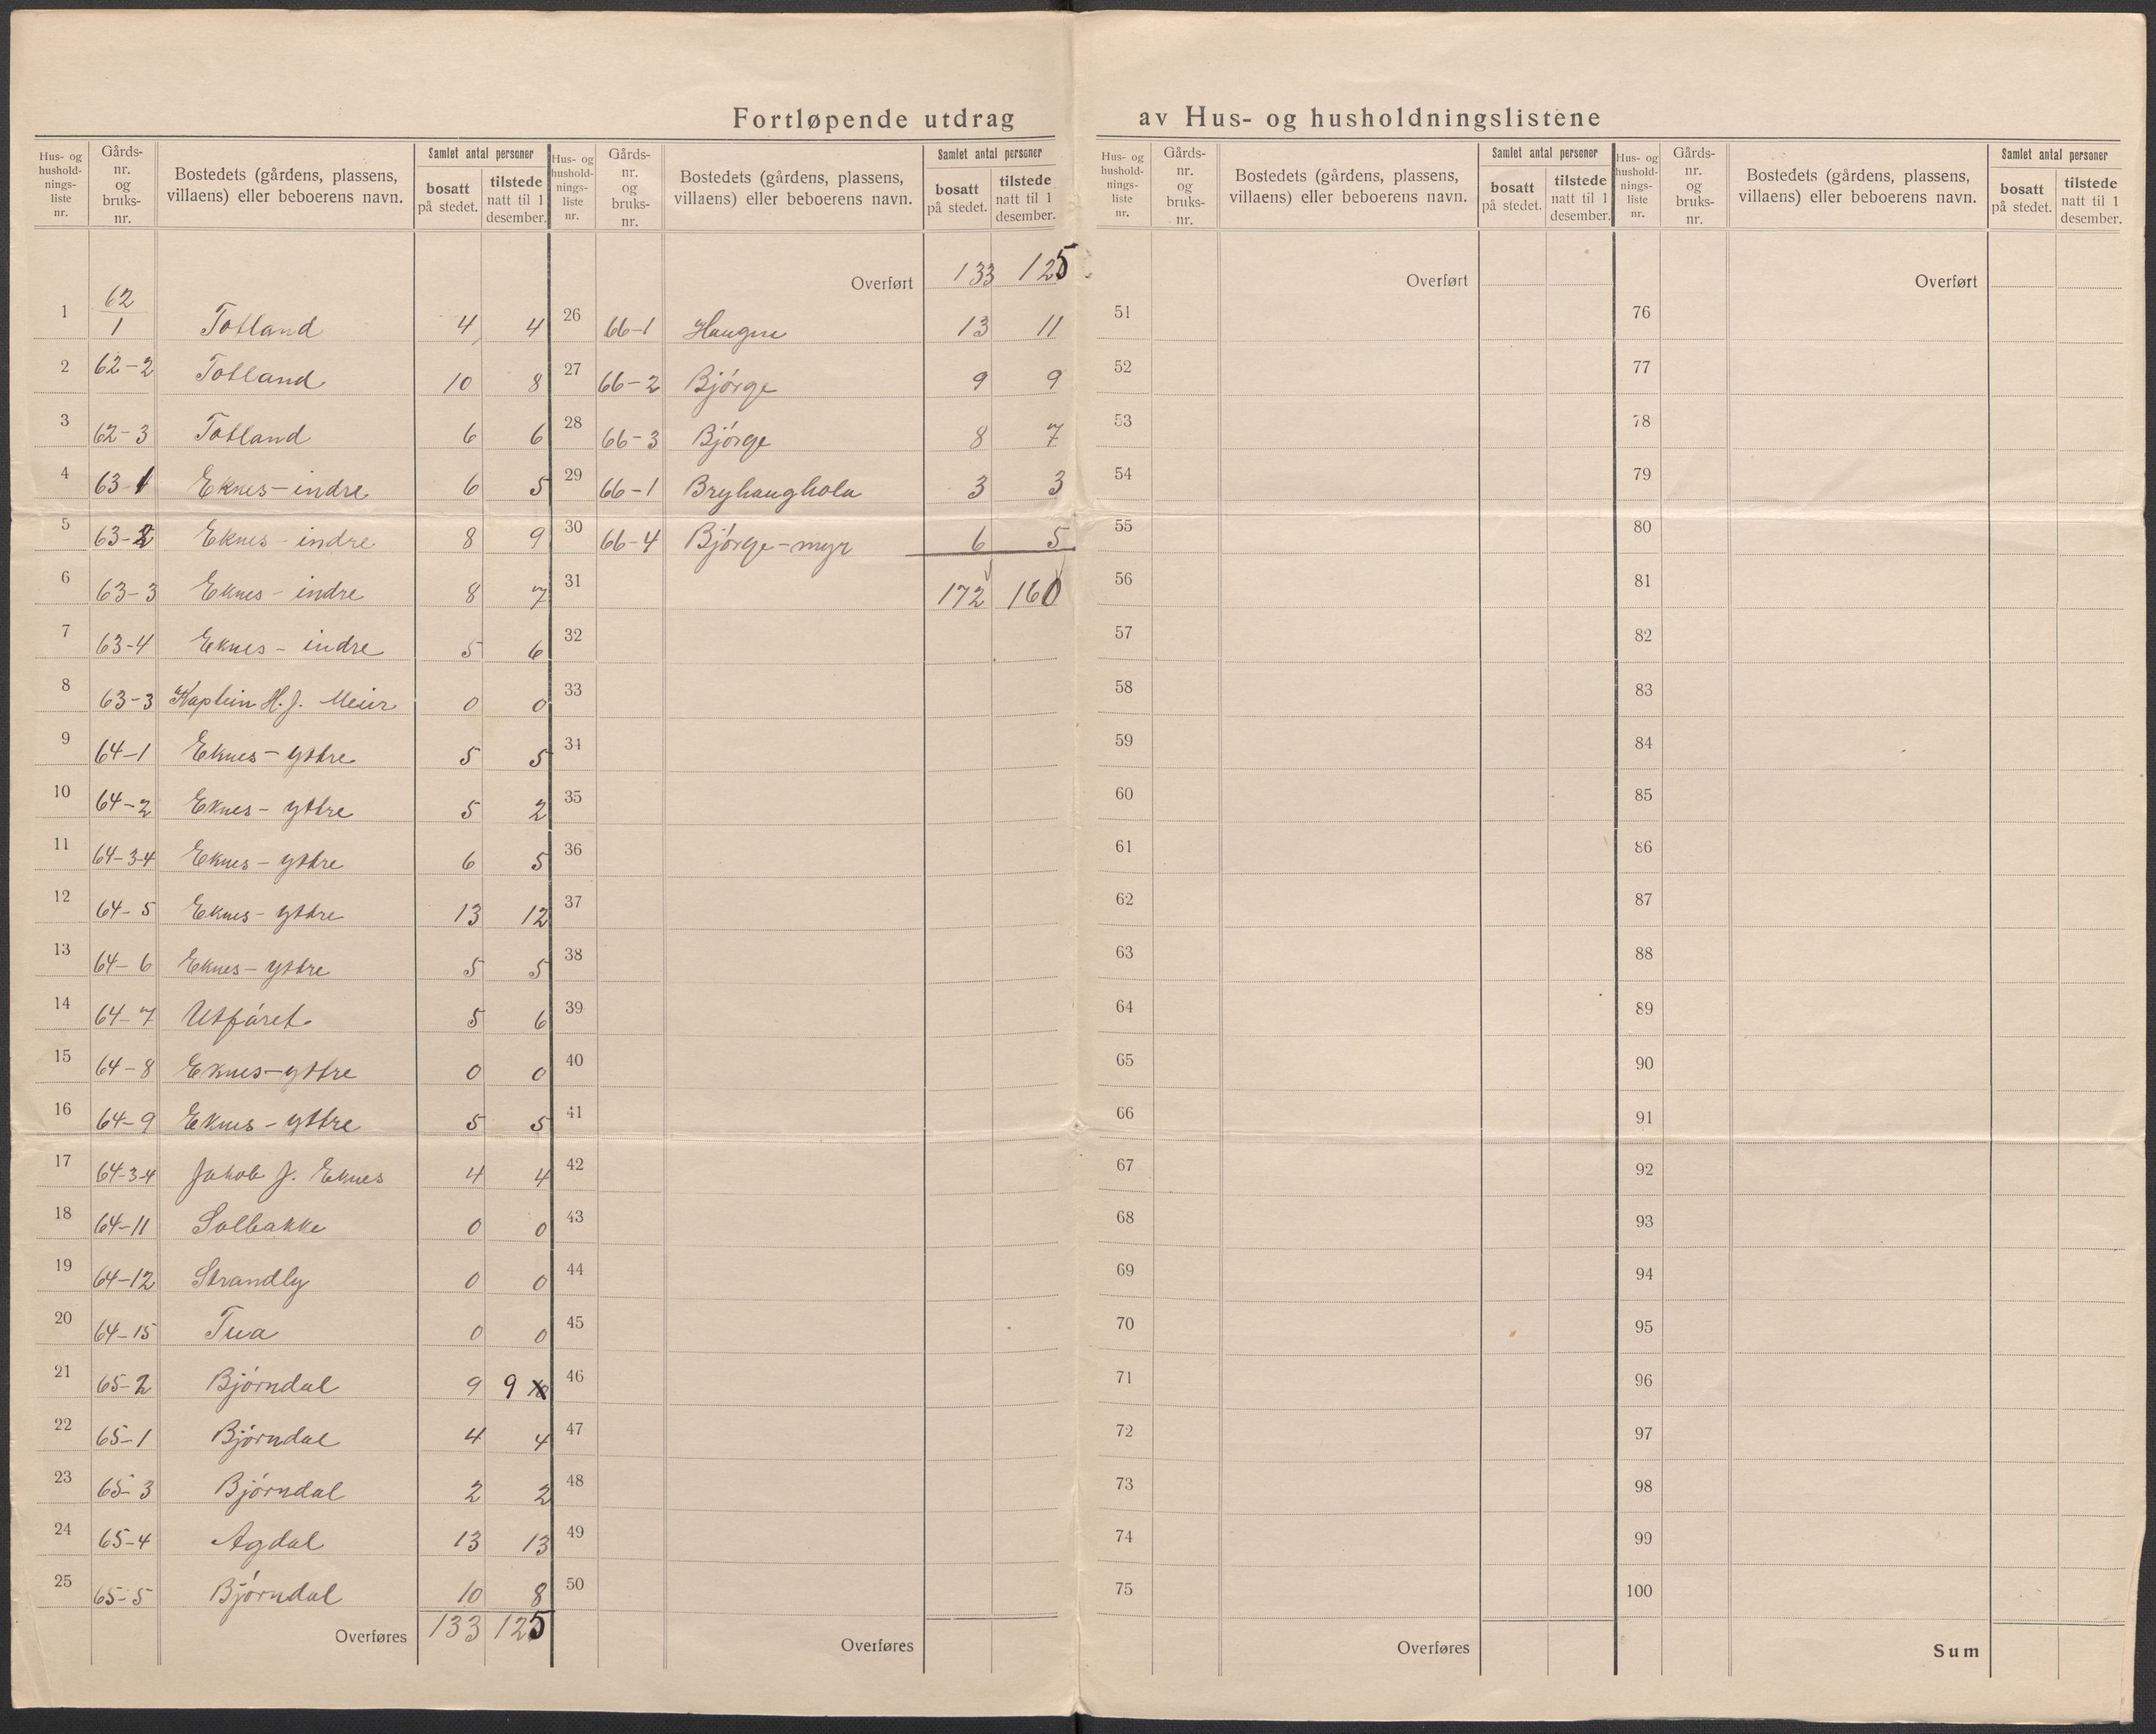 Fortløpende utdrag av Hus- og husholdningslistene
Hus- og hushold-nings-liste nr. | Gårds-nr. og bruks-nr. | Bostedets (gårdens, plassens, villaens) eller beboerens navn. | Samlet antal personer | bosatt på stedet. | tilstede natt til 1 desember.
1 62/1 Totland 4 4
2 62-2 Totland 10 8
3 62-3 Totland 6 6
4 63-1 Eknes-indre 6 5
5 63-2 Eknes-indre 8 9
6 63-3 Eknes-indre 8 7
7 63-4 Eknes-indre 5 6
8 63-3 Kaptein H. J. Meier 0 0
9 64-1 Eknes-yttre 5 5
10 64-2 Eknes-yttre 5 2
11 64-3-4 Eknes-yttre 6 5
12 64-5 Eknes-yttre 13 12
13 64-6 Eknes-yttre 5 5
14 64-7 Utfåret 5 6
15 64-8 Eknes-yttre 0 0
16 64-9 Eknes-yttre 5 5
17 64-3-4 Jakob J. Eknes 4 4
18 64-11 Solbakke 0 0
19 64-12 Strandly 0 0
20 64-15 Tua 0 0
21 65-2 Bjørndal 9 9
22 65-1 Bjørndal 4 4
23 65-3 Bjørndal 2 2
24 65-4 Agdal 13 13
25 65-5 Bjørndal 10 8
Overføres 133 125
Hus- og hushold-nings-liste nr. | Gårds-nr. og bruks-nr. | Bostedets (gårdens, plassens, villaens) eller beboerens navn. | Samlet antal personer | bosatt på stedet. | tilstede natt til 1 desember.
Overført 133 125
26 66-1 Haugen 13 11
27 66-2 Bjørge 9 9
28 66-3 Bjørge 8 7
29 66-1 Bryhaughola 3 3
30 66-4 Bjørge-myr 6 5
31 172 160
32
33
34
35
36
37
38
39
40
41
42
43
44
45
46
47
48
49
50
Overføres
Hus- og hushold-nings-liste nr. | Gårds-nr. og bruks-nr. | Bostedets (gårdens, plassens, villaens) eller beboerens navn. | Samlet antal personer | bosatt på stedet. | tilstede natt til 1 desember.
Overført
51
52
53
54
55
56
57
58
59
60
61
62
63
64
65
66
67
68
69
70
71
72
73
74
75
Overføres
Hus- og hushold-nings-liste nr. | Gårds-nr. og bruks-nr. | Bostedets (gårdens, plassens, villaens) eller beboerens navn. | Samlet antal personer | bosatt på stedet. | tilstede natt til 1 desember.
Overført
76
77
78
79
80
81
82
83
84
85
86
87
88
89
90
91
92
93
94
95
96
97
98
99
100
Sum